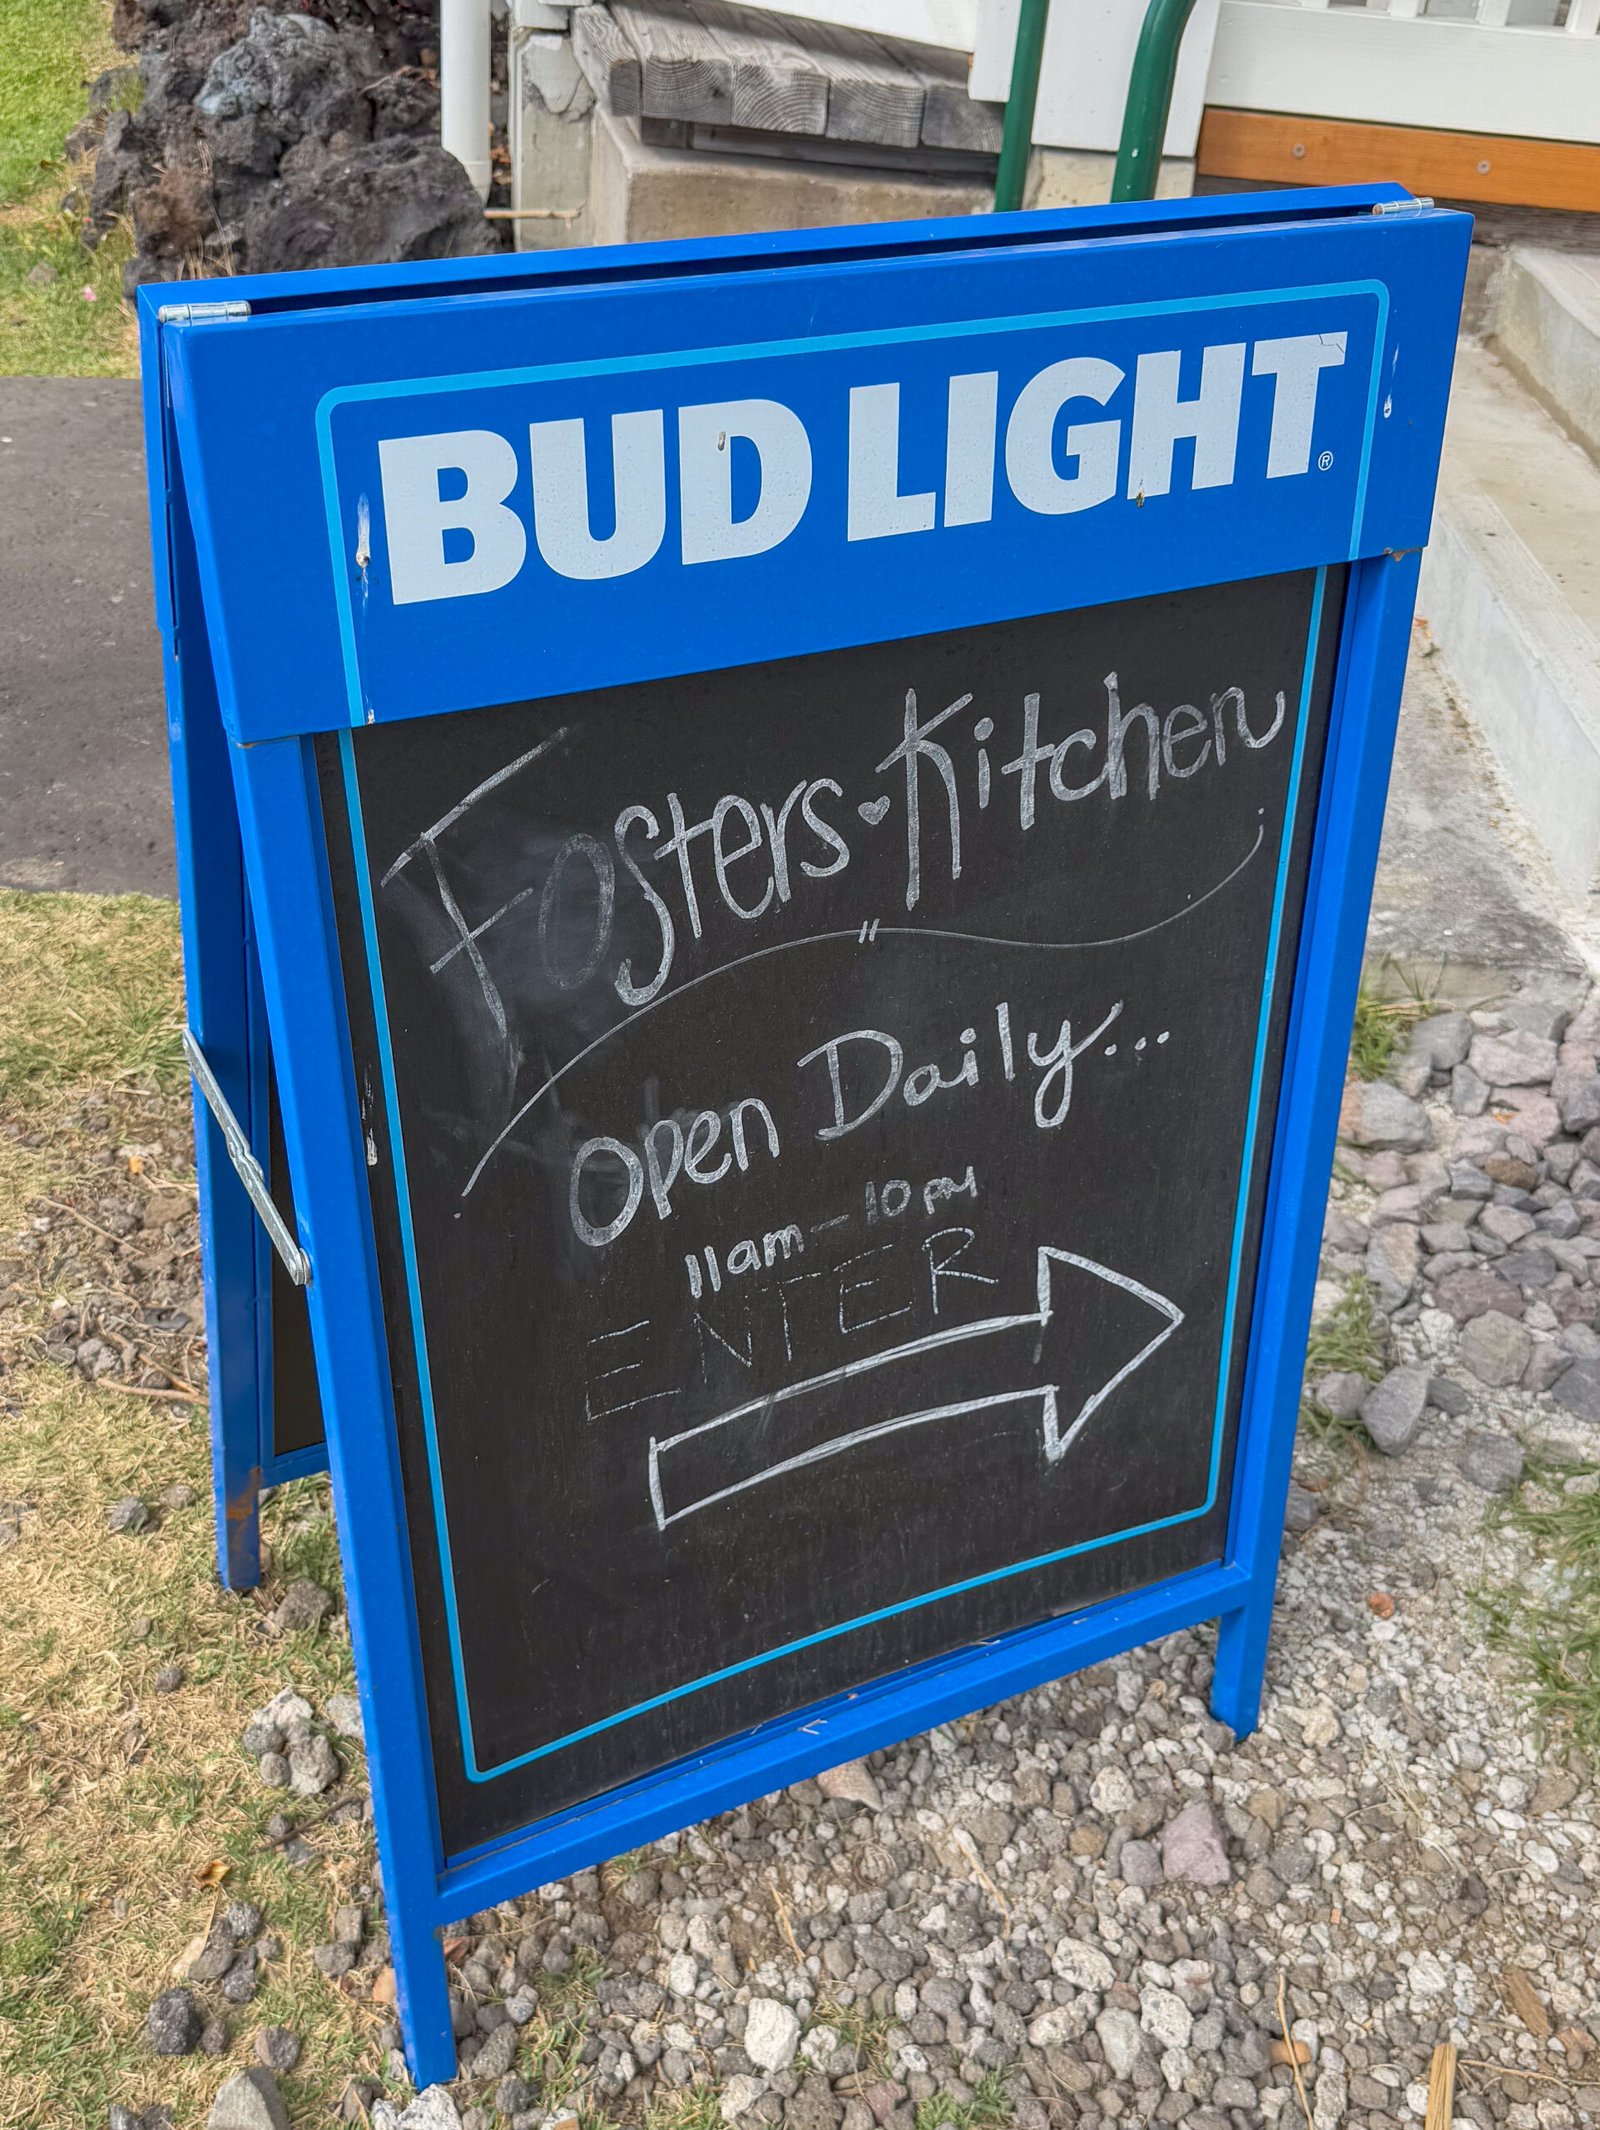 BUD LIGHT®
Fosters♥Kitchen
"
Open Daily...
11am - 10pm
ENTER